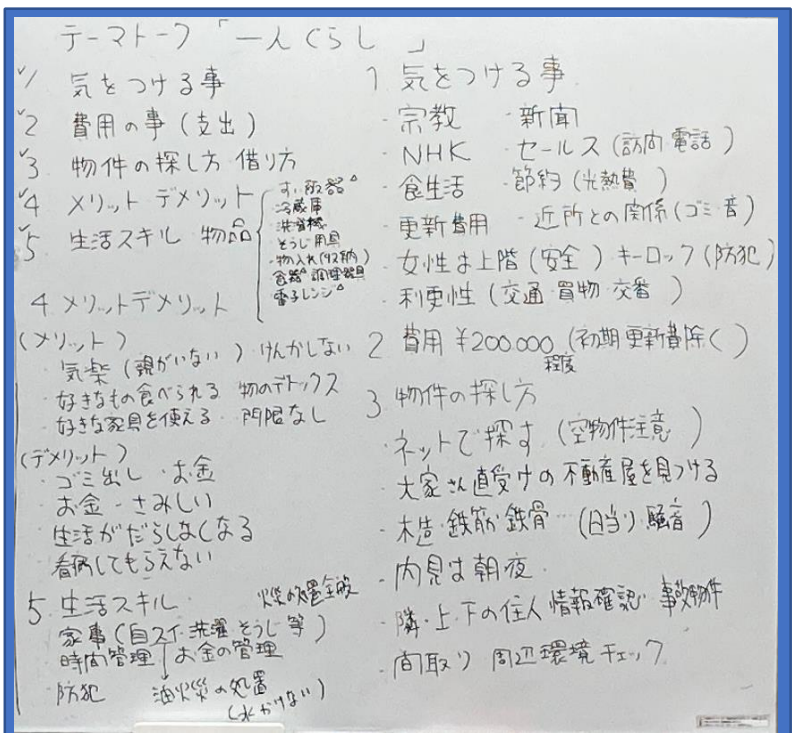 テーマトーク「一人ぐらし」
✓1 気をつける事
✓2 費用の事(支出)
✓3 物件の探し方 借り方
✓4 メリット デメリット
✓5 生活スキル 物品
冷蔵庫
洗濯機
そうじ用具
物入れ(収納)
食器 調理器具
電子レンジ
4 メリットデメリット
(メリット)
・気楽(親がいない)・けんかしない
・好きなもの食べられる 物のデトックス
・好きな家具を使える 門限なし
(デメリット)
・ゴミ出し ・お金
・お金 ・さみしい
・生活がだらしなくなる
・看病してもらえない
5 生活スキル
家事(自スイ・洗濯 そうじ 等)
時間管理 お金の管理
防犯 油火災の処置
(水かけない)
火災の処置全般
1 気をつける事
・宗教 ・新聞
・NHK ・セールス(訪問 電話)
・食生活 ・節約(光熱費)
・更新費用 ・近所との関係(ゴミ・音)
・女性は上階(安全) キーロック(防犯)
・利更性(交通・買物・交番)
2 費用 ¥200.000(初期更新費除く)
程度
3 物件の探し方
・ネットで探す(空物件注意)
・大家さん直受けの不動産屋を見つける
・木造・鉄筋・鉄骨…(日当り・騒音)
・内見は朝夜
・隣・上・下の住人 情報確認 事故物件
・間取り 周辺環境チェック